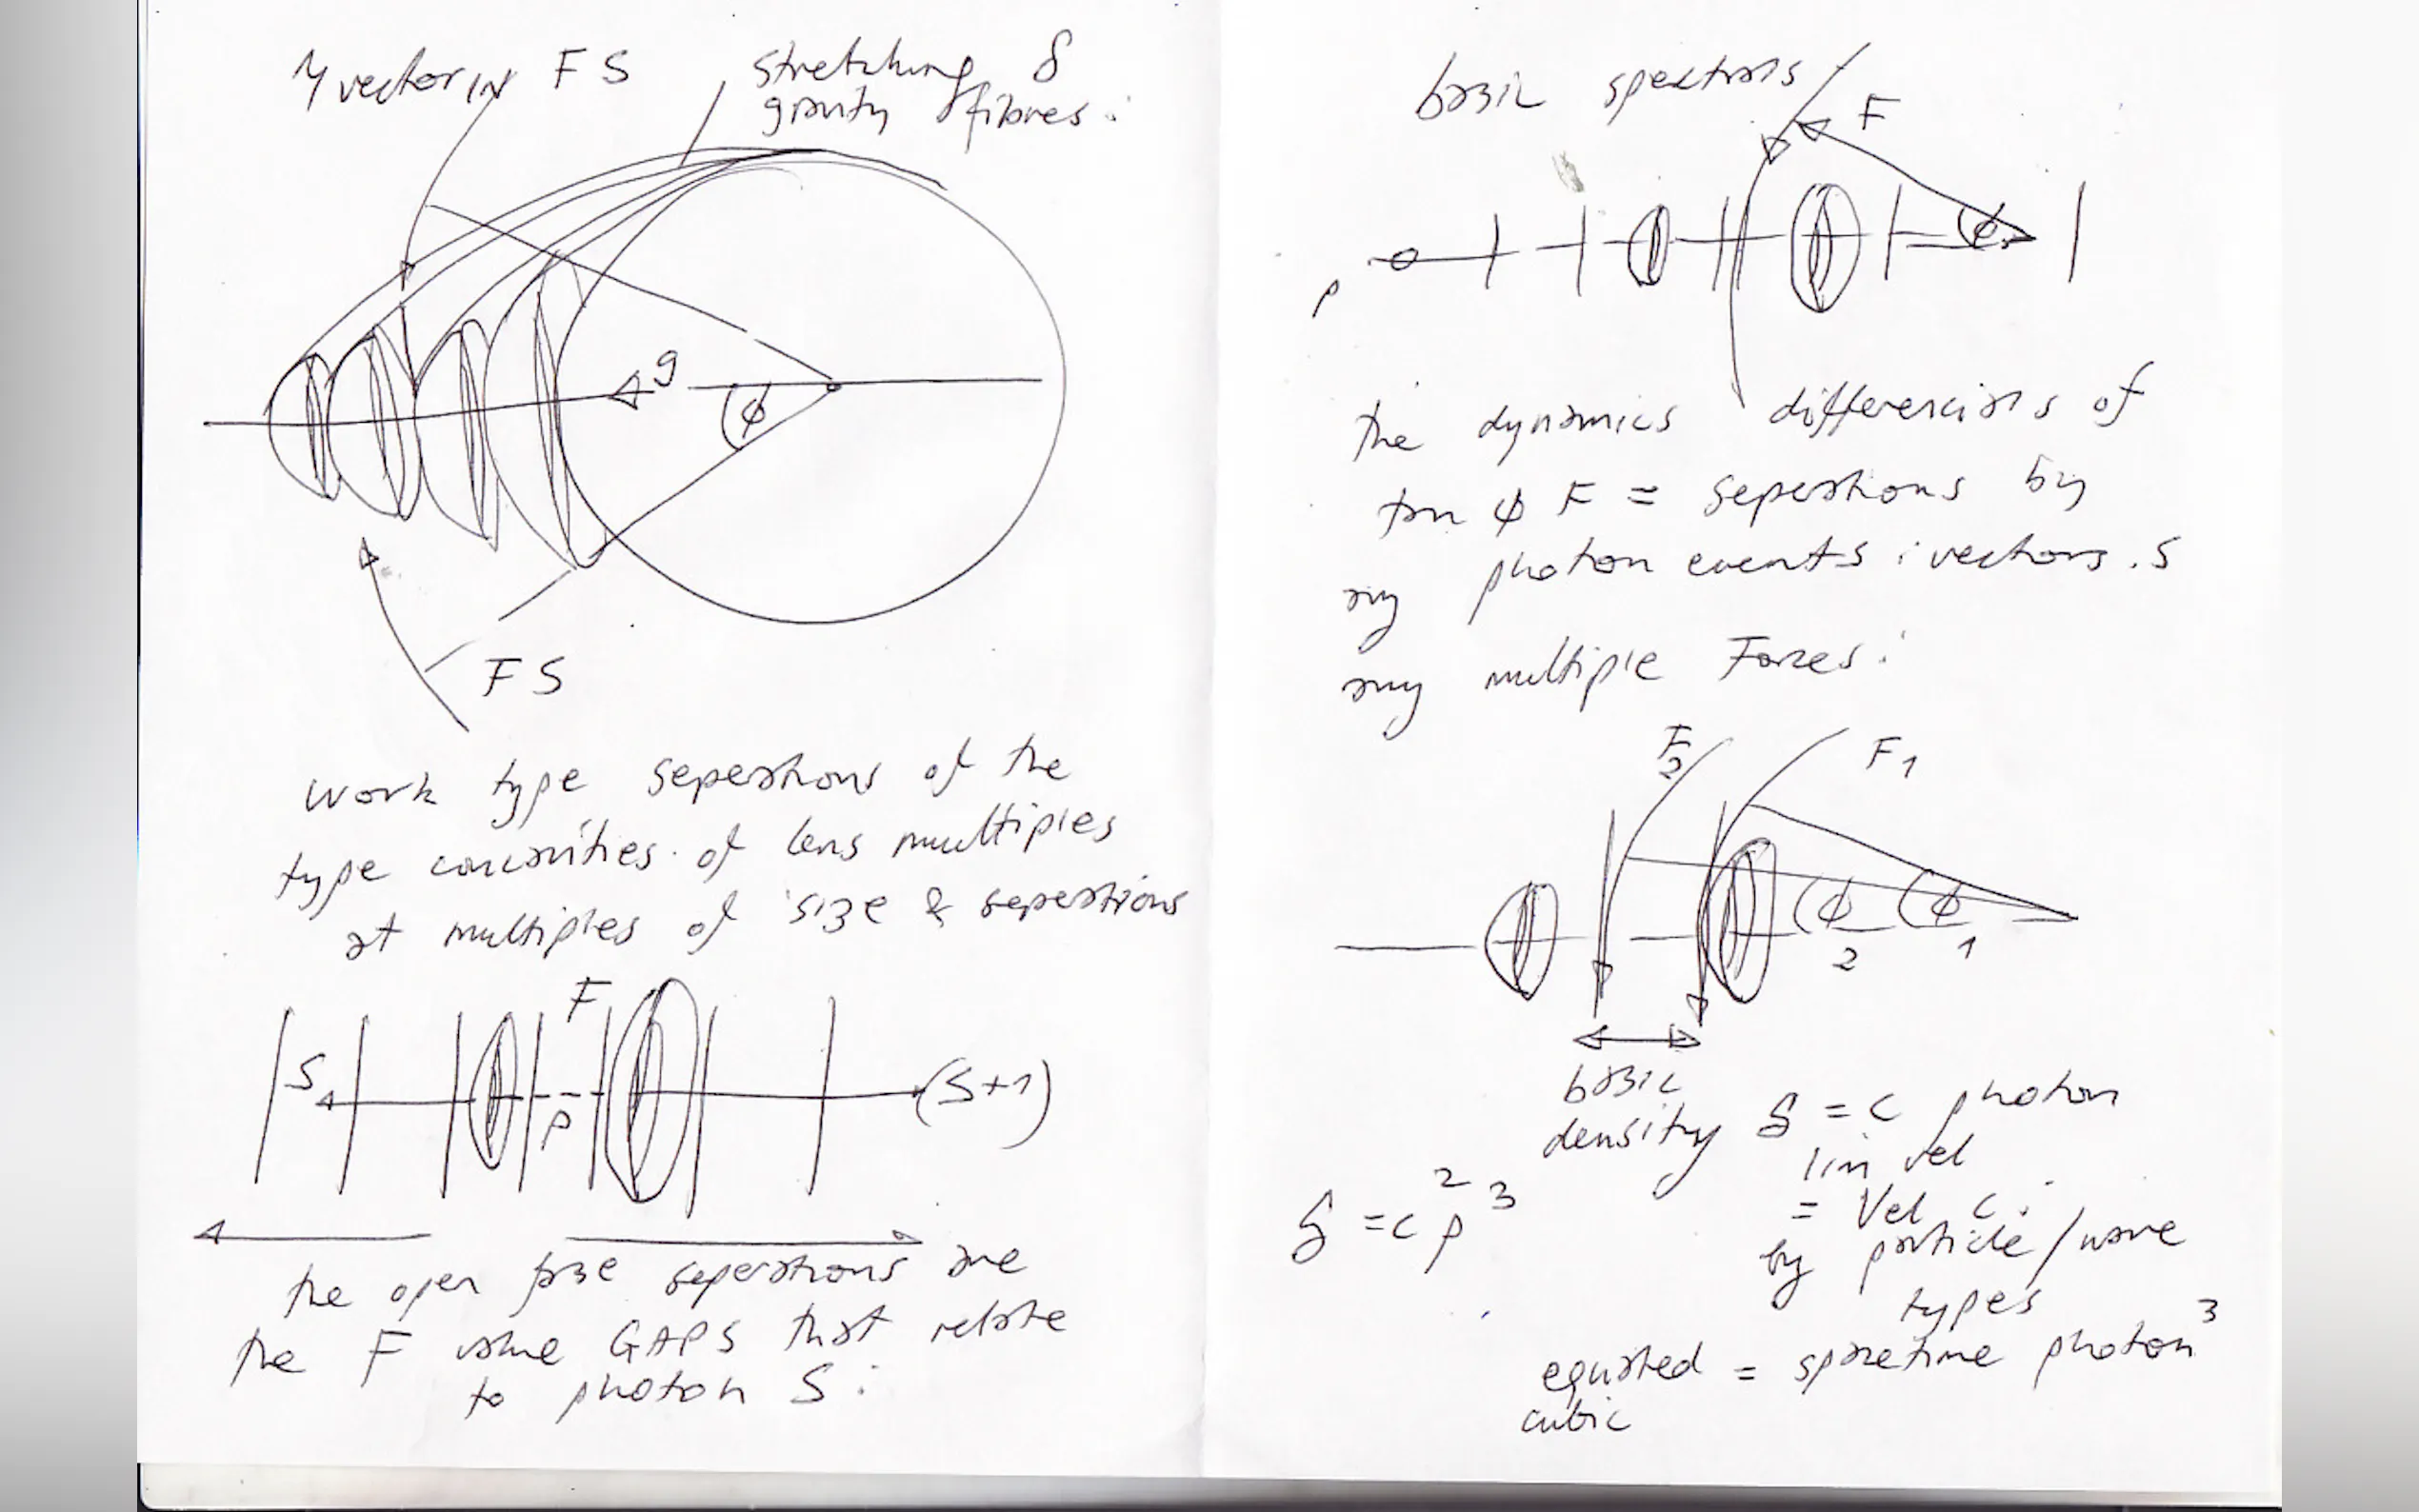 vector IN FS
stretching δ
gravity fibres:
g
φ
FS
work type seperations of the
type concavities. of lens multiples
at multiples of size & seperations
F
S
p
(S+1)
the open force seperations are
the F value GAPS that relate
to photon S:
basic spectrals
F
φ
p
the dynamics differencials of
tan φ F = seperations by
any photon events : vectors. S
any multiple Forces:
F2
F1
φ2
φ1
basic
density δ = c photon
lin vel
= Vel c:
by particle/wave
types
δ = c² p³
equated = spacetime photon³
cubic